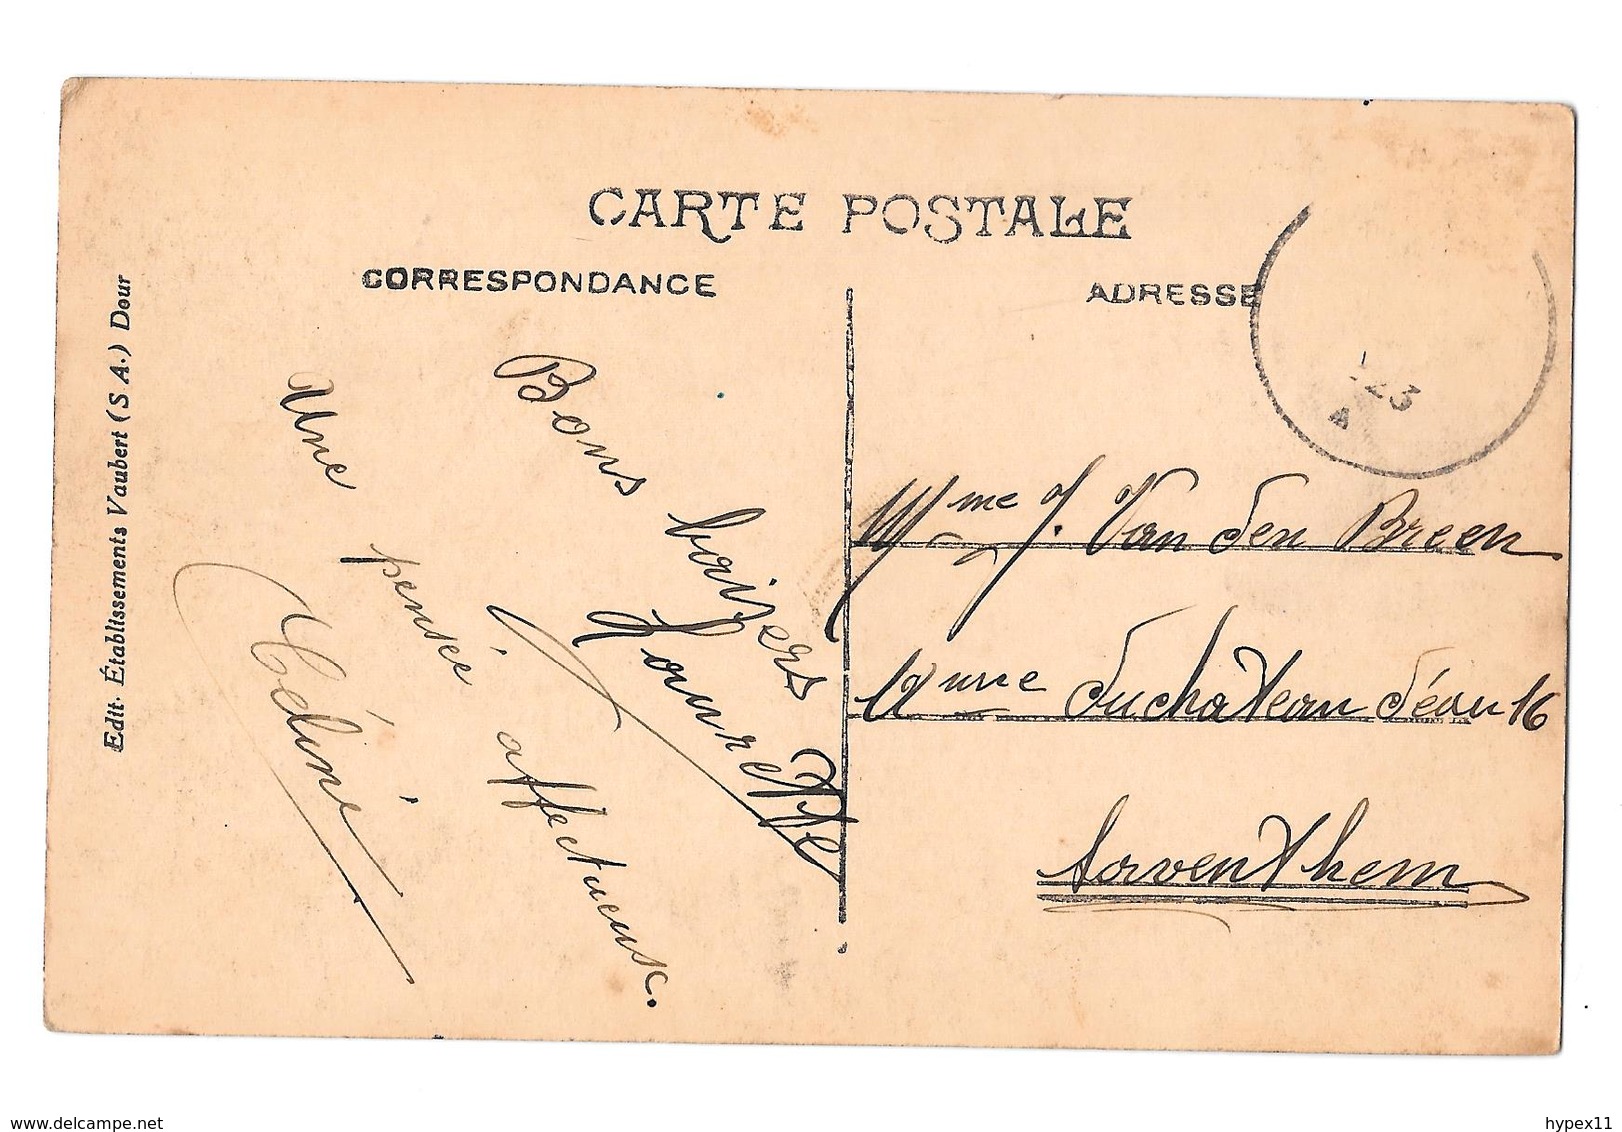 CARTE POSTALE
CORRESPONDANCE
ADRESSE
Edit. Établissements Vaubert (S. A.) Dour
Bons baisers
Lourette
Une pensée affectueuse.
Céline
23
A
Mme J. Van den Breen
Avenue du chateau d'eau 16
Aarventhem
delcampe.net
hypex11